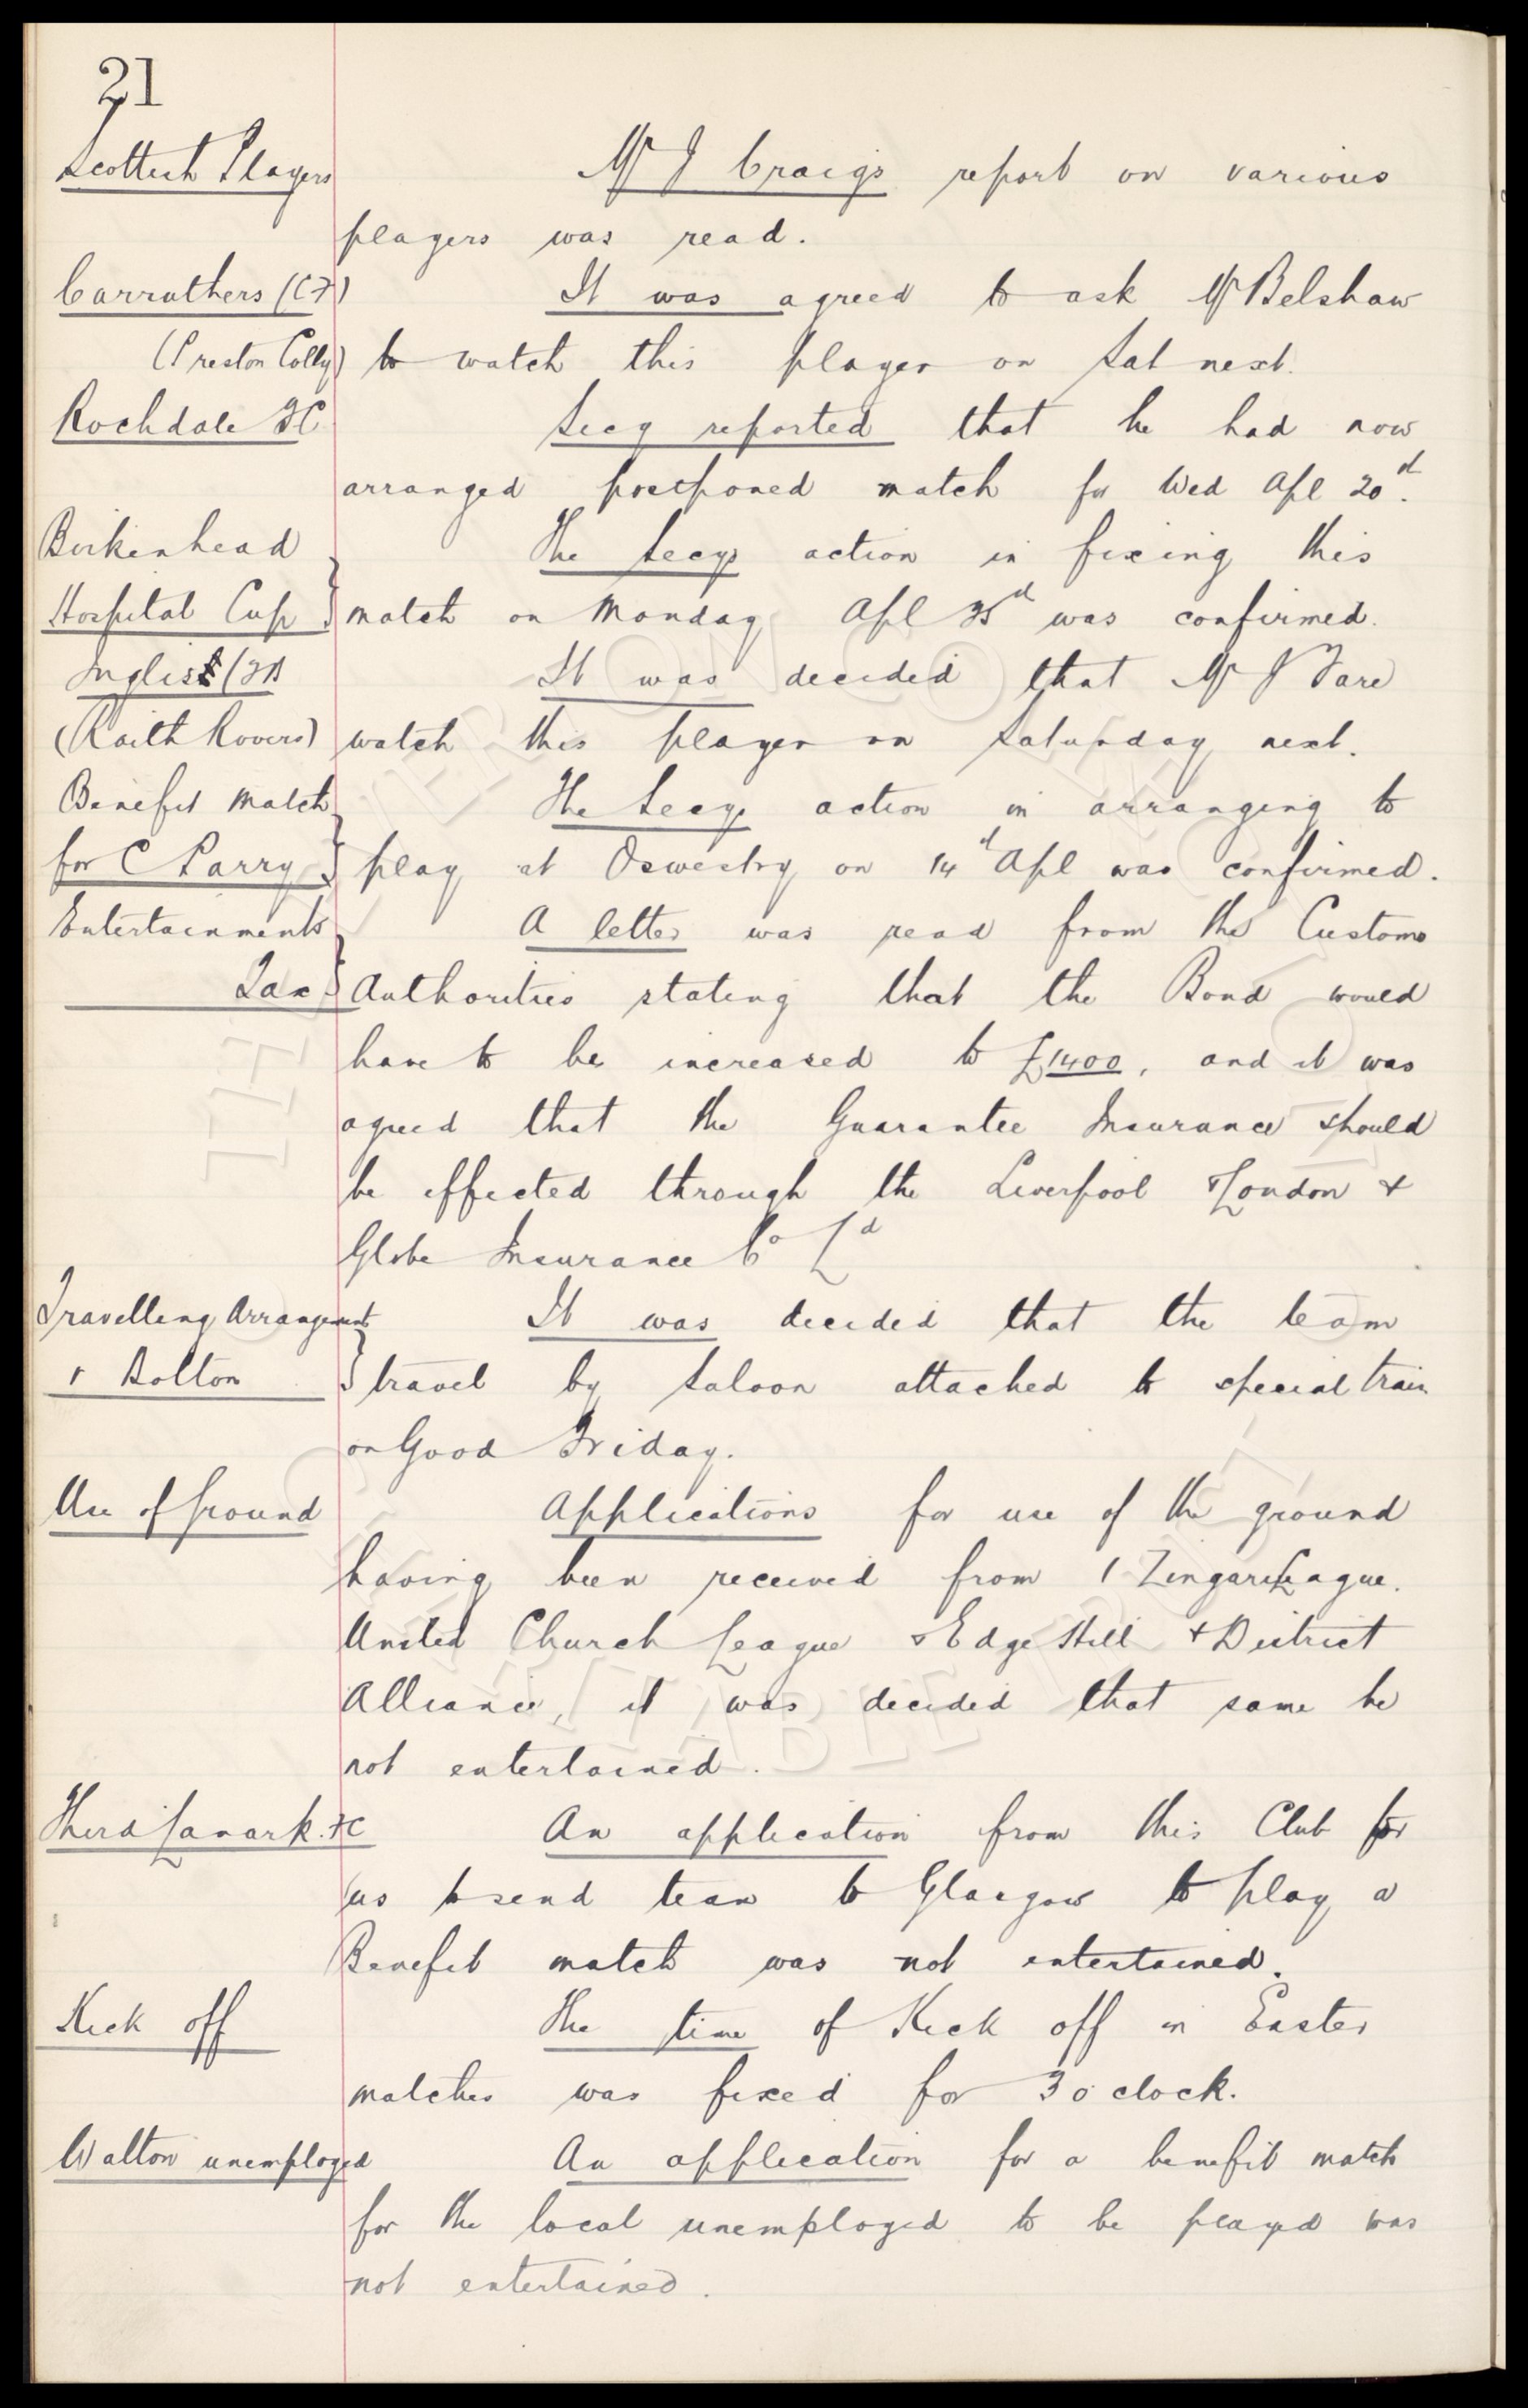 21
Scottish Players Mr J Craigs report on various
players was read.
Carruthers (CF) It was agreed to ask Mr Belshaw
(Preston Colly) to watch this player on Sat next.
Rochdale FC Secy reported that he had now
arranged postponed match for Wed Apl 20th.
Birkenhead The Secys action in fixing this
Hospital Cup match on Monday Apl 25th was confirmed.
Inglis It was decided that Mr J Fare
(Raith Rovers) watch this player on Saturday next.
Benefit Match The Secys action in arranging to
for C Parry play at Oswestry on 14th Apl was confirmed.
Entertainments A letter was read from the Customs
Tax Authorities stating that the Bond would
have to be increased to £1400, and it was
agreed that the Guarantee Insurance should
be effected through the Liverpool & London &
Globe Insurance Co Ld
Travelling Arrangements It was decided that the team
v Bolton travel by Saloon attached to special train
on Good Friday.
Use of Ground Applications for use of the ground
having been received from I Zingari League.
United Church League & Edge Hill & District
Alliance, it was decided that same be
not entertained.
Third Lanark. FC An application from this Club for
us to send team to Glasgow to play a
Benefit match was not entertained.
Kick off The time of Kick off in Easter
matches was fixed for 3 o'clock.
Walton unemployed An application for a benefit match
for the local unemployed to be played was
not entertained.